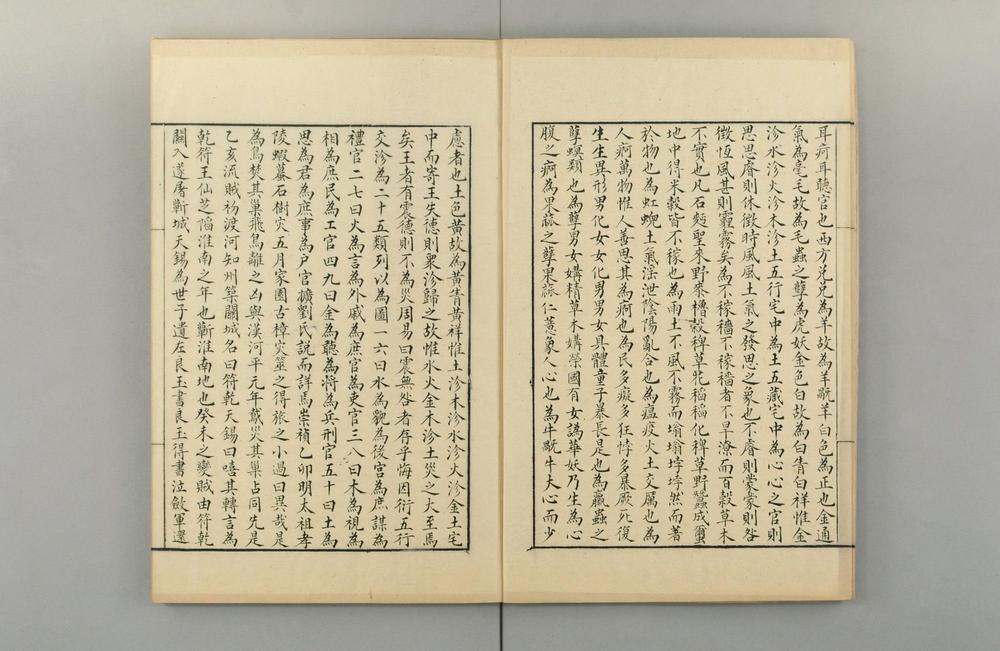 耳疴耳聽官也西方兌兌為羊故為羊旤羊白色為正也金通
氣為毫毛故為毛蟲之孽為虎妖金色白故為白眚白祥惟金
沴水沴火沴木沴土五行宅中為土五藏宅中為心心之官則
思思睿則休徵時風風土氣之發思之象也不睿則蒙蒙則咎
徵恆風甚則霾霧矣為不稼穡不稼穡者不旱潦而百穀草木
不實也凡石麪聖來野黍櫓穀稗草花稻稻化稗草野蠶成繭
地中得米穀皆不稼也為雨土不風不霧而塕塕垺垺然而著
於物也為虹蜺土氣淫泄陰陽亂合也為瘟疫火土交厲也為
人痾萬物惟人善思其為痾也為民多癡多狂悖多暴厥死復
生生異形男化女女化男男女具體童子暴長是也為蠃蟲之
孽螟類也為孽男女媾精草木媾榮國有女謁華妖乃生為心
腹之痾為果蓏之孽果蓏仁薏象人心也為牛旤牛大心而少
慮者也土色黃故為黃眚黃祥惟土沴木沴水沴火沴金土宅
中而寄王失德則衆沴歸之故惟水火金木沴土災之大至焉
矣王者有震德則不為災周易曰震無咎者存乎悔因衍五行
交沴為二十五類列以為圖一六曰水為貌為後宮為庶謀為
禮官二七曰火為言為外戚為庶官為吏官三八曰木為視為
相為庶民為工官四九曰金為聽為將為兵刑官五十曰土為
思為君為庶事為户官擴劉氏說而詳焉崇禎乙卯明太祖孝
陵蝦蟇石樹災五月家園古樟災筮之得旅之小過曰異哉是
為鳥焚其巢飛鳥離之凶與漢河平元年䳒災其巢占同先是
乙亥流賊初渡河知州築闢城名曰符乾天錫曰嘻其轉言為
乾符王仙芝䧟淮南之年也蘄淮南地也癸未之變賊由符乾
闢入遂屠蘄城天錫為世子遺左良玉書良玉得書泣斂軍還